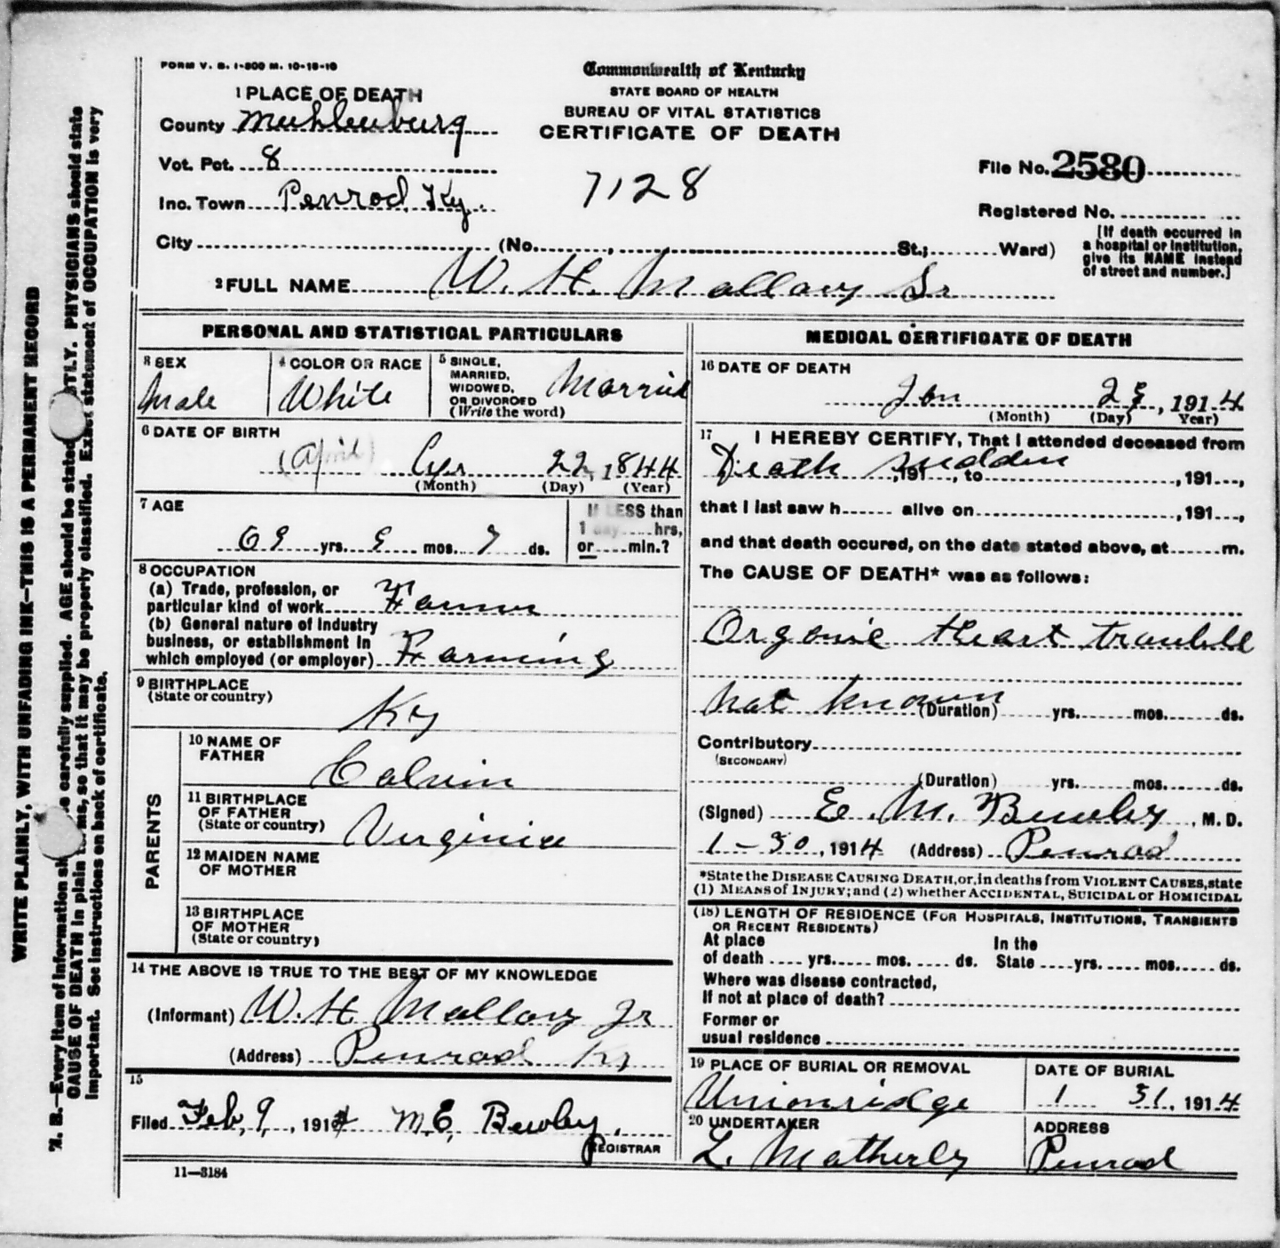 FORM V. S. 1-500 M. 10-18-10
Commonwealth of Kentucky
STATE BOARD OF HEALTH
BUREAU OF VITAL STATISTICS
CERTIFICATE OF DEATH
1 PLACE OF DEATH
County Muhlenburg
Vot. Pct. 8
Inc. Town Penrod, Ky.
7128
File No. 2580
Registered No.
City (No. , St.; Ward)
[If death occurred in
a hospital or institution,
give its NAME instead
of street and number.]
2 FULL NAME W. H. Mallory Sr
PERSONAL AND STATISTICAL PARTICULARS
3 SEX
Male
4 COLOR OR RACE
White
5 SINGLE,
MARRIED,
WIDOWED,
OR DIVORCED
(Write the word)
Married
6 DATE OF BIRTH
(April) 22, 1844
(Month) (Day) (Year)
7 AGE
69 yrs. 9 mos. 7 ds.
If LESS than
1 day hrs,
or min.?
8 OCCUPATION
(a) Trade, profession, or
particular kind of work Farmer
(b) General nature of industry
business, or establishment in
which employed (or employer) Farming
9 BIRTHPLACE
(State or country)
Ky
PARENTS
10 NAME OF
FATHER
Calvin
11 BIRTHPLACE
OF FATHER
(State or country)
Virginia
12 MAIDEN NAME
OF MOTHER
13 BIRTHPLACE
OF MOTHER
(State or country)
14 THE ABOVE IS TRUE TO THE BEST OF MY KNOWLEDGE
(Informant) W. H. Mallory Jr
(Address) Penrod Ky
15
Filed Feb, 9, 1914 M. E. Bewley.
REGISTRAR
11—3184
MEDICAL CERTIFICATE OF DEATH
16 DATE OF DEATH
Jan 29, 1914
(Month) (Day) Year)
17 I HEREBY CERTIFY, That I attended deceased from
Death sudden , 191 , to , 191 ,
that I last saw h alive on , 191 ,
and that death occured, on the date stated above, at m.
The CAUSE OF DEATH* was as follows:
Organic Heart trouble
not known (Duration) yrs. mos. ds.
Contributory
(SECONDARY)
(Duration) yrs. mos. ds.
(Signed) E. M. Bewley , M. D.
1-30, 1914 (Address) Penrod
*State the DISEASE CAUSING DEATH, or, in deaths from VIOLENT CAUSES, state
(1) MEANS of INJURY; and (2) whether ACCIDENTAL, SUICIDAL or HOMICIDAL
(18) LENGTH OF RESIDENCE (FOR HOSPITALS, INSTITUTIONS, TRANSIENTS
OR RECENT RESIDENTS)
At place In the
of death yrs. mos. ds. State yrs. mos. ds.
Where was disease contracted,
If not at place of death?
Former or
usual residence
19 PLACE OF BURIAL OR REMOVAL
Unionridge
DATE OF BURIAL
1 31, 1914
20 UNDERTAKER
L. Matherly
ADDRESS
Penrod
WRITE PLAINLY, WITH UNFADING INK—THIS IS A PERMANENT RECORD
N. B.—Every item of information carefully supplied. AGE should be stated PHYSICIANS should state
CAUSE OF DEATH in plain so that it may be properly classified. Exact statement of OCCUPATION is very
important. See instructions on back of certificate.